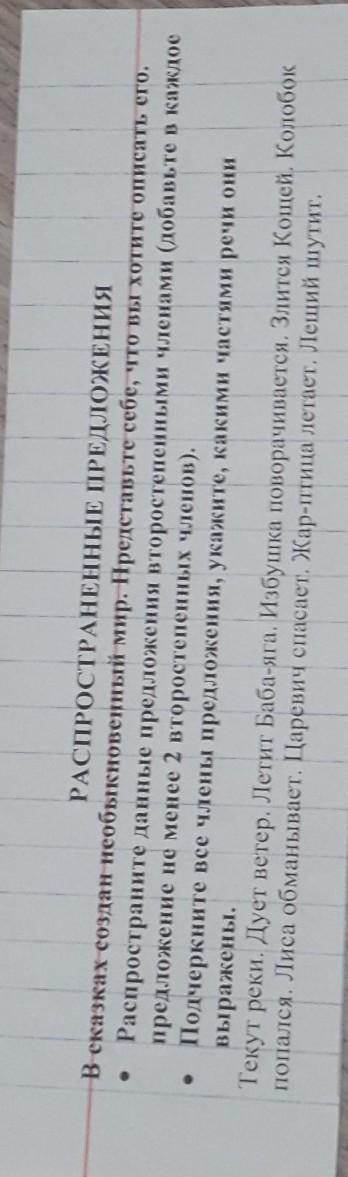 РАСПРОСТРАНЕННЫЕ ПРЕДЛОЖЕНИЯ
В сказках создан необыкновенный мир. Представьте себе, что вы хотите описать его.
• Распространите данные предложения второстепенными членами (добавьте в каждое
предложение не менее 2 второстепенных членов).
• Подчеркните все члены предложения, укажите, какими частями речи они
выражены.
Текут реки. Дует ветер. Летит Баба-яга. Избушка поворачивается. Злится Кощей. Колобок
попался. Лиса обманывает. Царевич спасает. Жар-птица летает. Леший шутит.